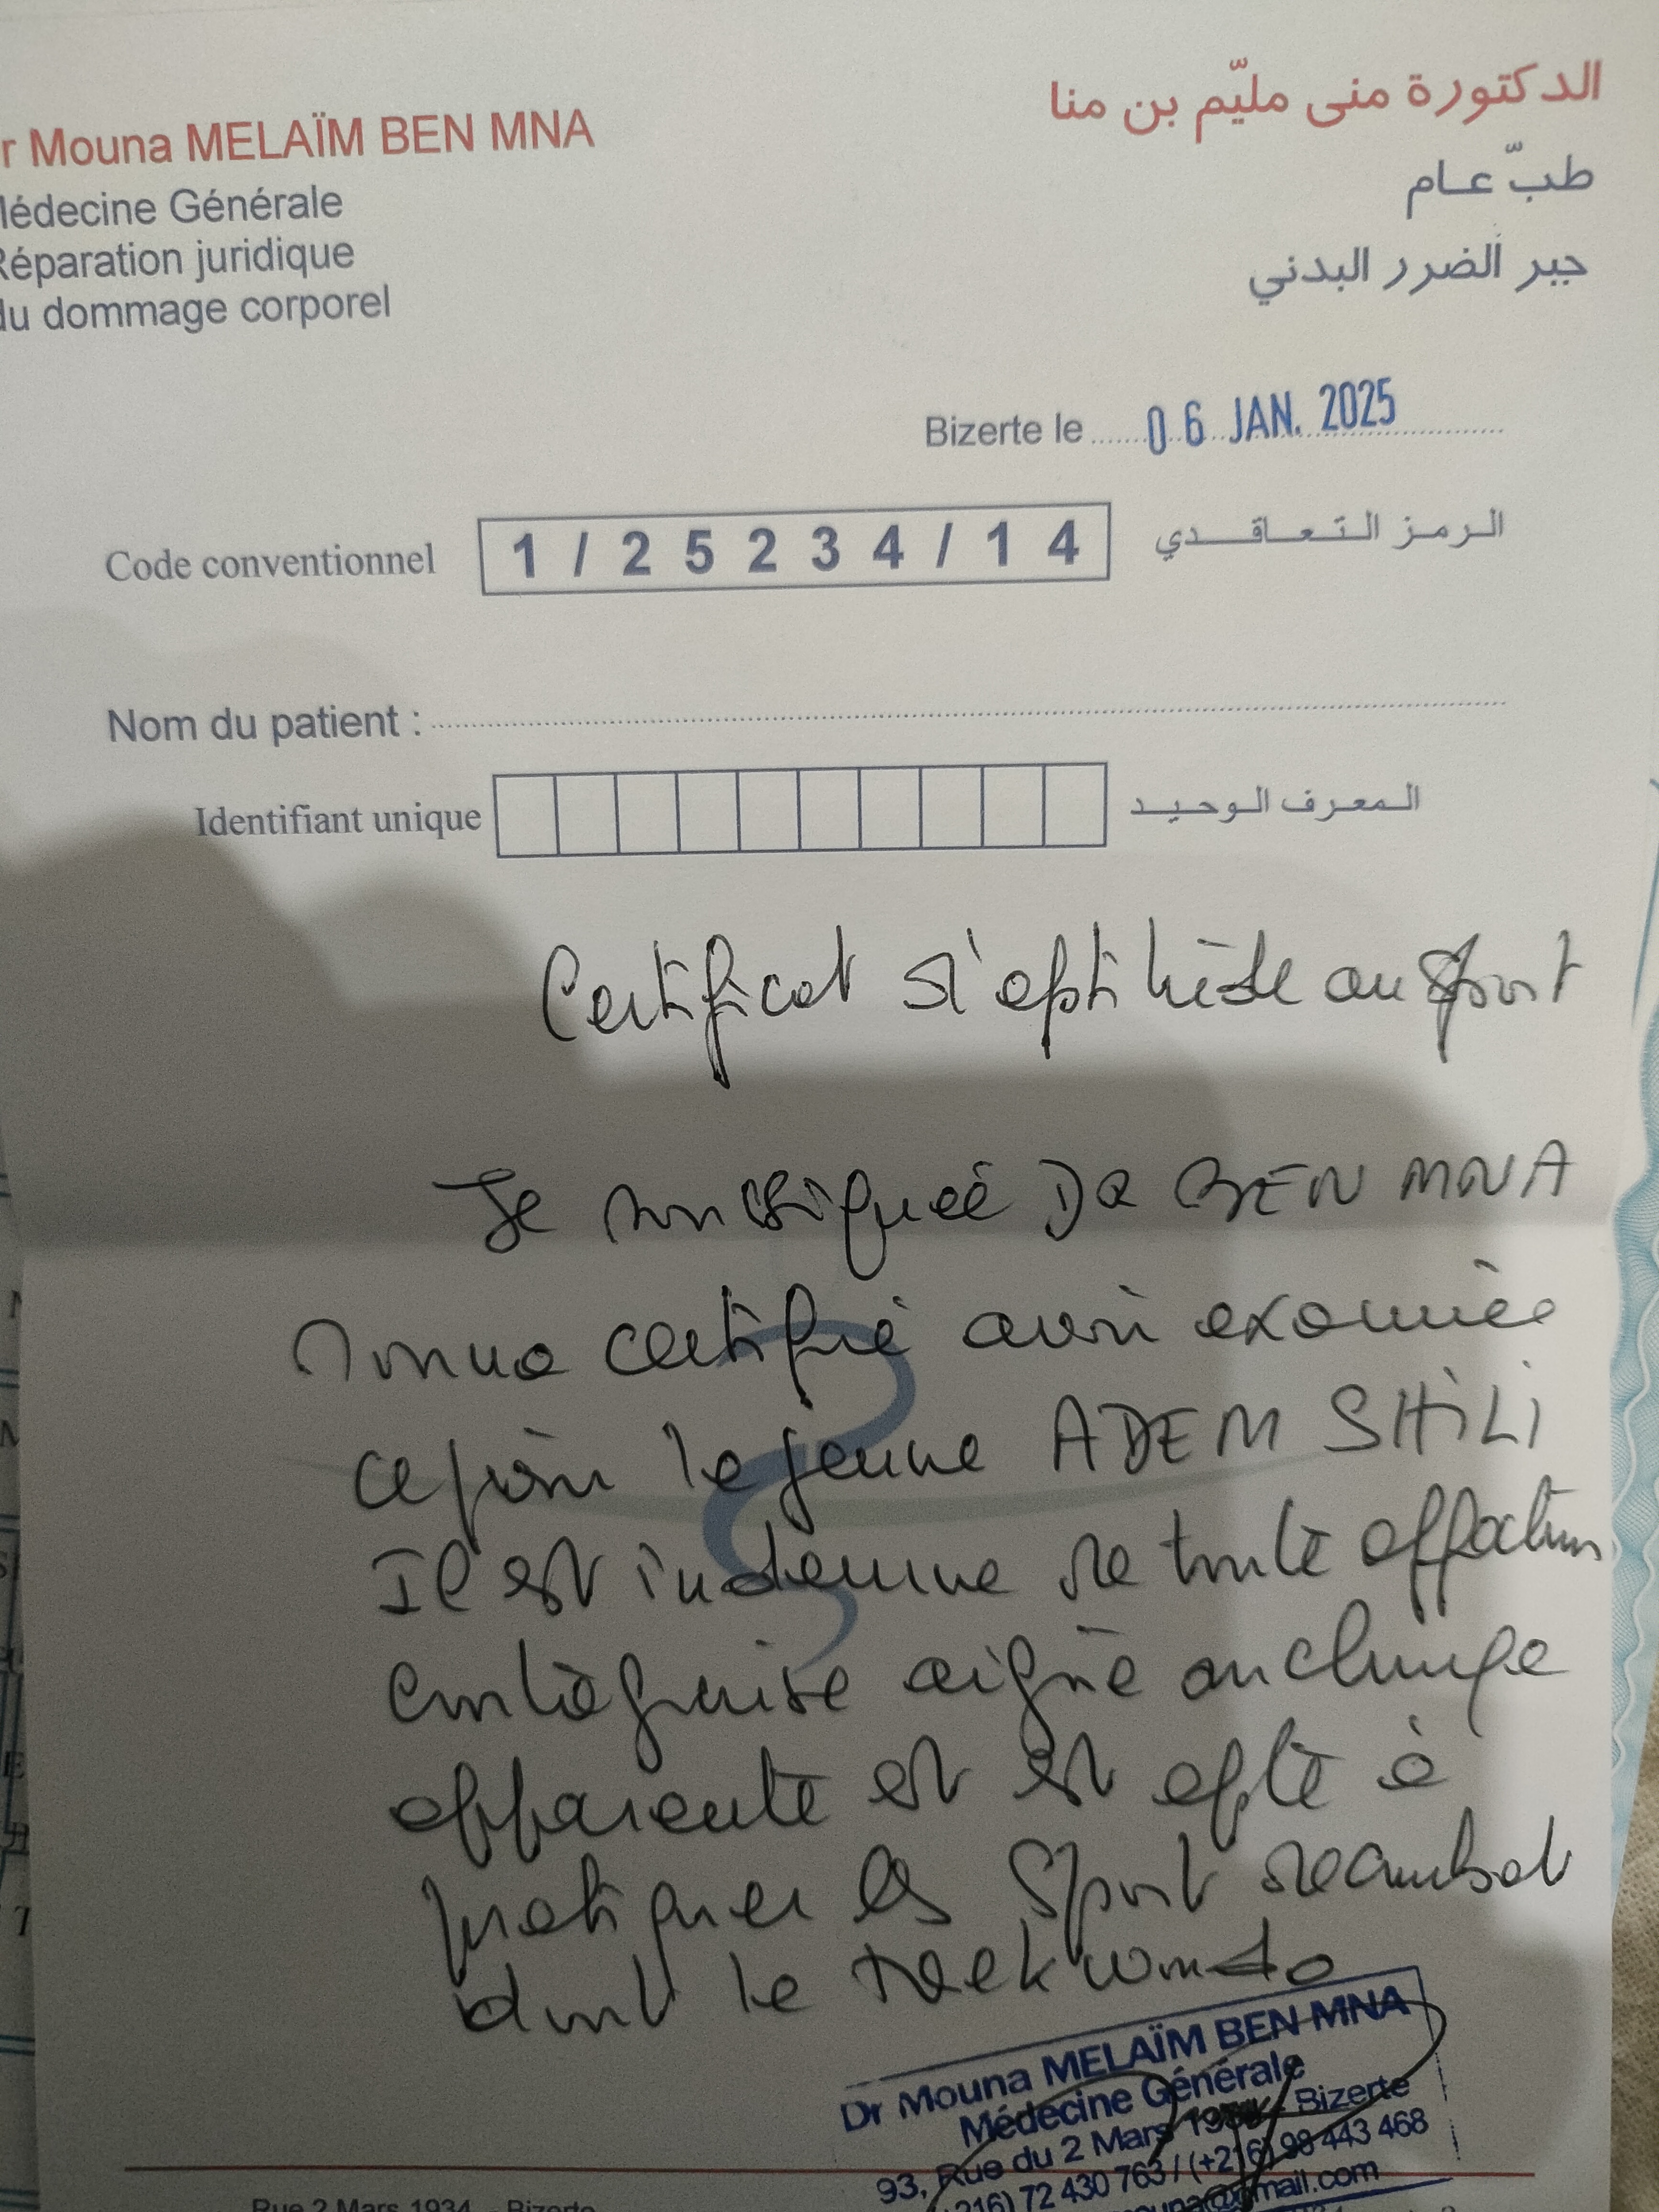 r Mouna MELAÏM BEN MNA
الدكتورة منى مليّم بن منا
Médecine Générale
طبّ عام
Réparation juridique
du dommage corporel
جبر الضرر البدني
Bizerte le 06 JAN. 2025
Code conventionnel 1/25234/14 الرمز التعاقدي
Nom du patient :
Identifiant unique المعرف الوحيد
Certificat d'aptitude au sport
Je soussignée DR BEN MNA
Mouna certifie avoir examinée
ce jour le jeune ADEM SHILI
Il est indemne de toute affection
contagieuse aigüe ou chronique
apparente et est apte à
pratiquer les sport de combat
dont le taekwondo
Dr Mouna MELAÏM BEN MNA
Médecine Générale
93, Rue du 2 Mars Bizerte
216) 72 430 763 / (+216) 98 443 468
ouna@gmail.com
Rue 2 Mars 1934 - Bizerte